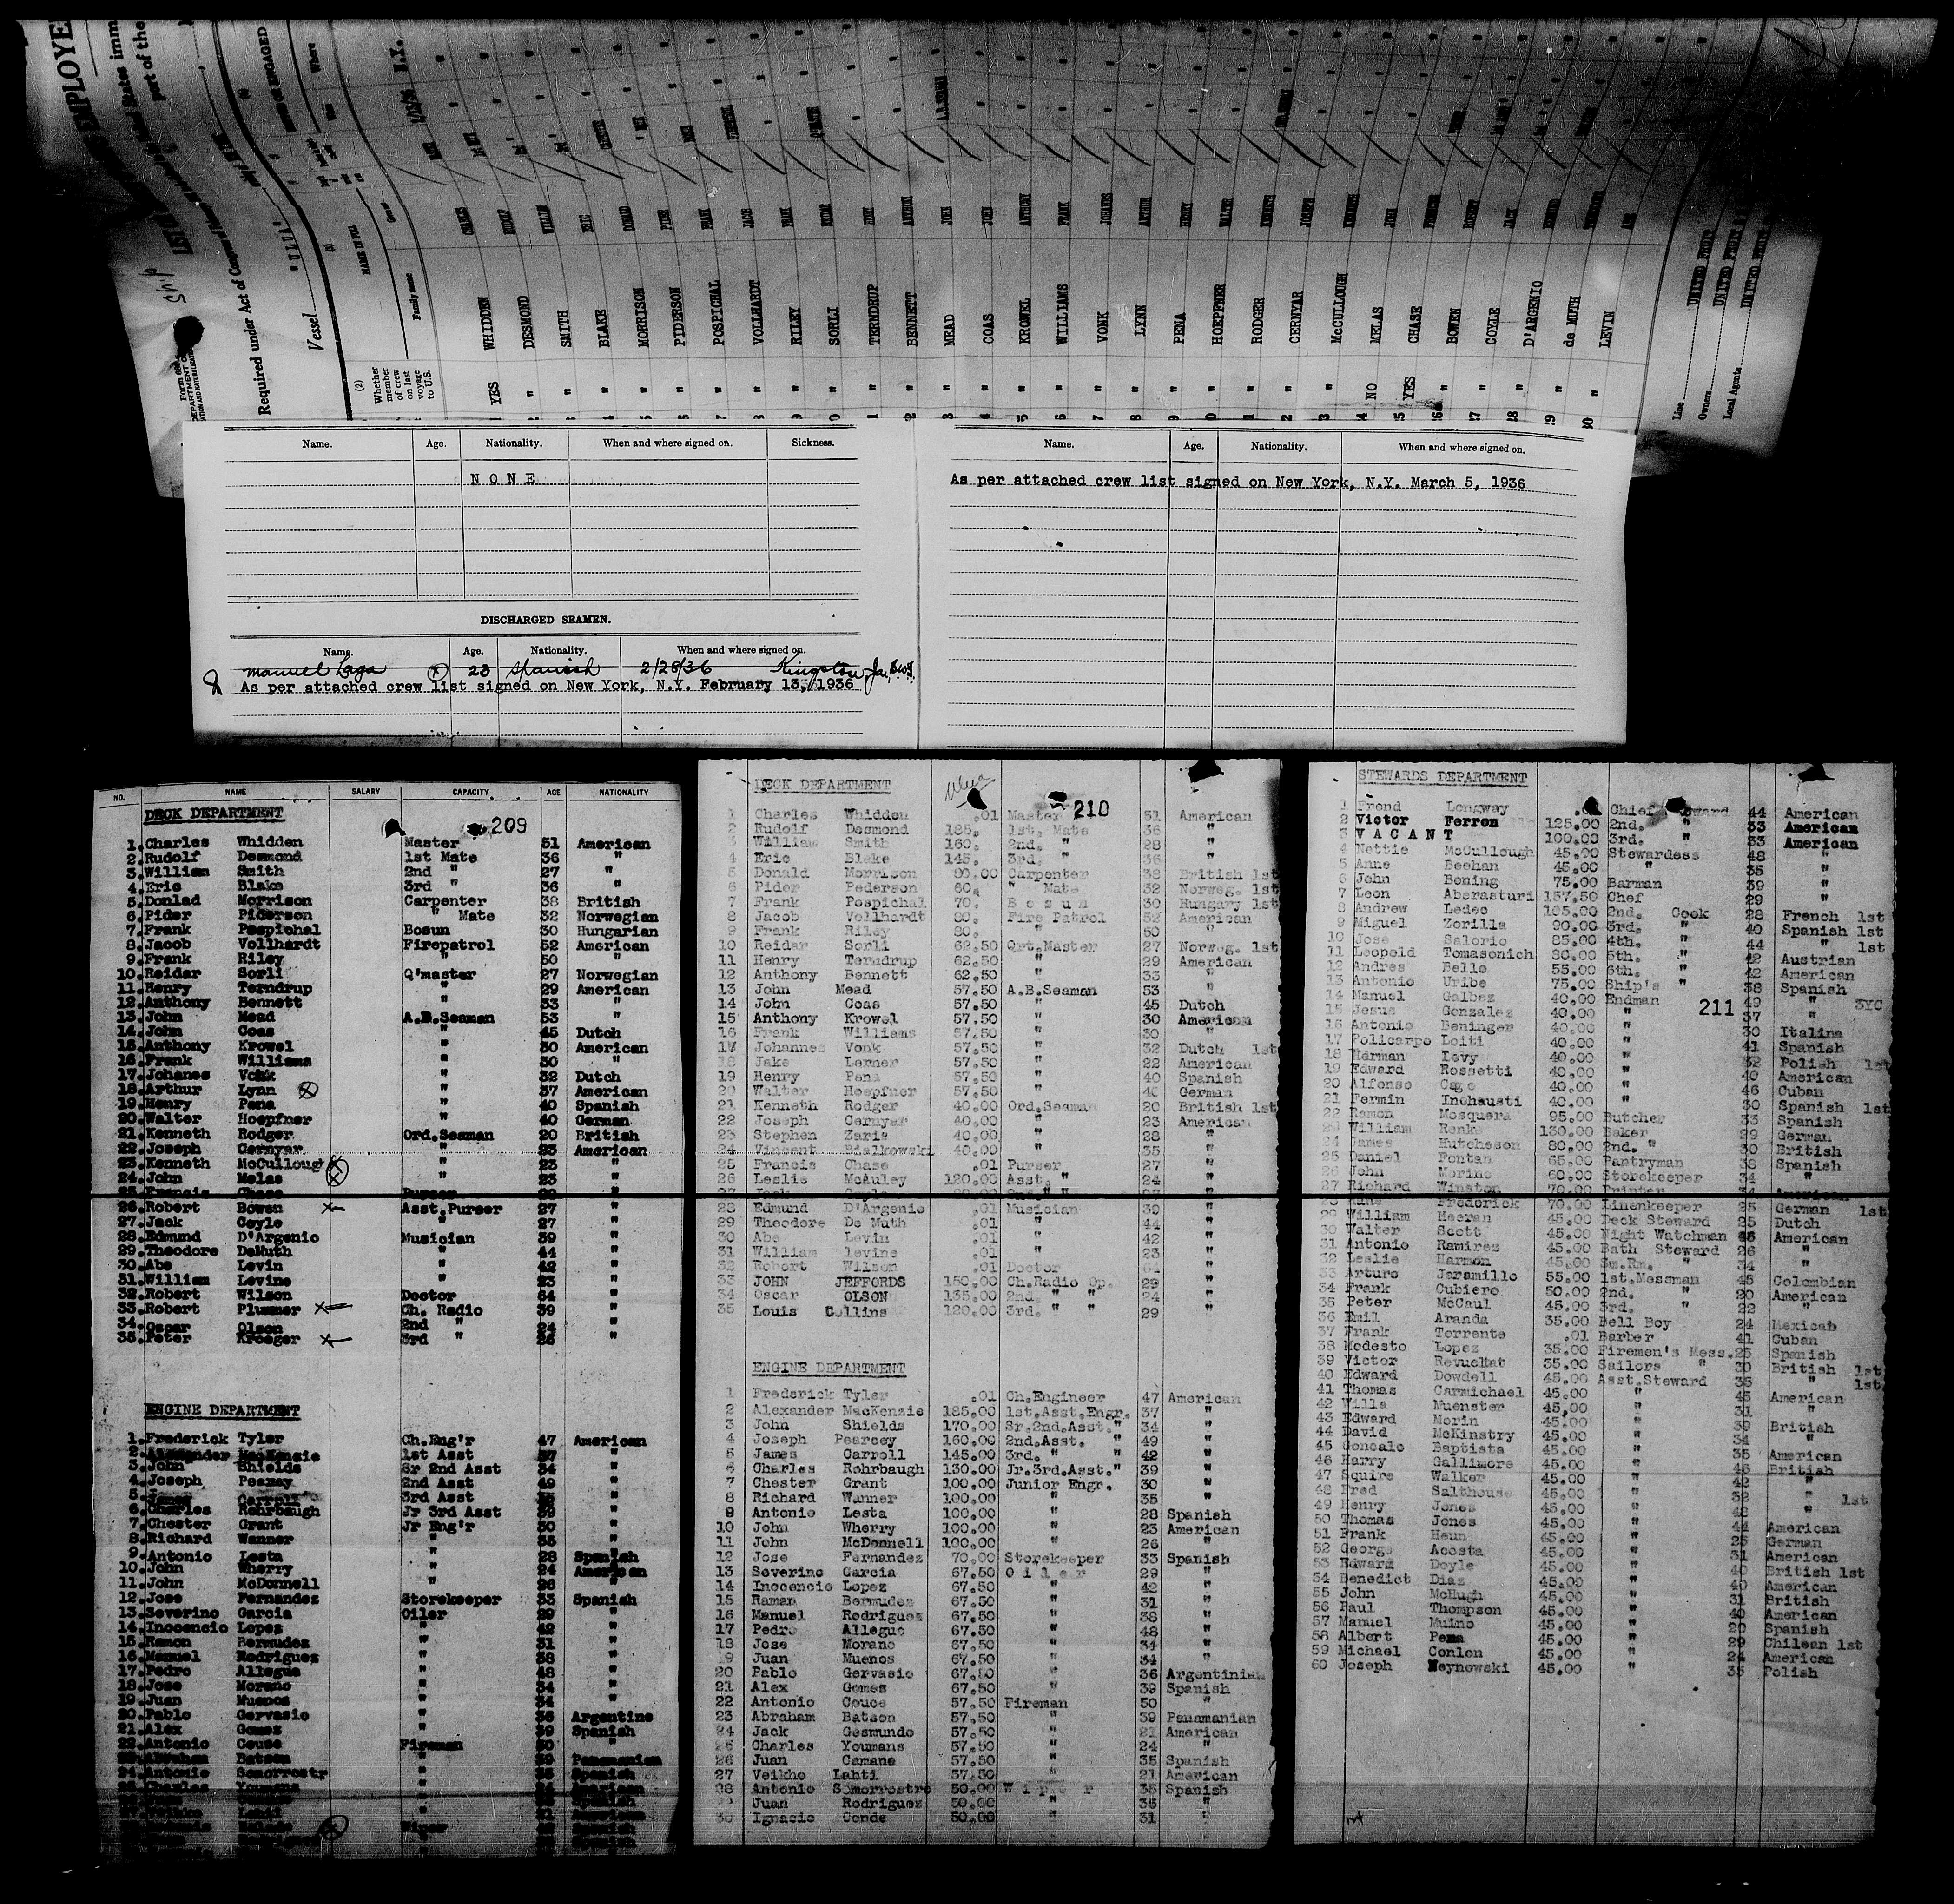 EMPLOYE
Required under Act of Congress of
Vessel "ULUA"
(2)
Whether member of crew on last voyage to U.S.
NAME IN FULL
Family name
Given
Where
N.Y.
YES WHIDDEN CHARLES
" DESMOND RUDOLF
" SMITH WILLIAM
" BLAKE ERIC
" MORRISON DONALD
" PIDERSON PIDER
" POSPICHAL FRANK
" VOLLHARDT JACOB
" RILEY FRANK
" SORLI REIDAR
" TERNDRUP HENRY
" BENNETT ANTHONY
" MEAD JOHN
" COAS JOHN
" KROWEL ANTHONY
" WILLIAMS FRANK
" VONK JOHANES
" LYNN ARTHUR
" PENA HENRY
" HOEPFNER WALTER
" RODGER KENNETH
" CERNYAR JOSEPH
" McCULLOUGH KENNETH
NO MELAS JOHN
YES CHASE FRANCIS
" BOWEN ROBERT
" COYLE JACK
" D'ARGENIO EDMUND
" de MUTH THEODORE
" LEVIN ABE
Line UNITED FRUIT
Owners UNITED FRUIT
Local Agents UNITED FRUIT
Name. Age. Nationality. When and where signed on. Sickness.
N O N E
DISCHARGED SEAMEN.
Name. Age. Nationality. When and where signed on.
Manuel Laga 23 Spanish 2/28/36 Kingston Ja, B.W.I.
As per attached crew list signed on New York, N.Y. February 13, 1936
Name. Age. Nationality. When and where signed on.
As per attached crew list signed on New York, N.Y. March 5, 1936
NO. NAME SALARY CAPACITY AGE NATIONALITY
DECK DEPARTMENT
209
1. Charles Whidden Master 51 American
2. Rudolf Desmond 1st Mate 36 "
3. William Smith 2nd " 27 "
4. Eric Blake 3rd " 36 "
5. Donlad Morrison Carpenter 38 British
6. Pider Piderson " Mate 32 Norwegian
7. Frank Pospichal Bosun 30 Hungarian
8. Jacob Vollhardt Firepatrol 52 American
9. Frank Riley " 50 "
10. Reidar Sorli Q'master 27 Norwegian
11. Henry Terndrup " 29 American
12. Anthony Bennett " 33 "
13. John Mead A.B.Seaman 53 "
14. John Coas " 45 Dutch
15. Anthony Krowel " 30 American
16. Frank Williams " 30 "
17. Johanes Vonk " 32 Dutch
18. Arthur Lynn " 37 American
19. Henry Pena " 40 Spanish
20. Walter Hoepfner " 40 German
21. Kenneth Rodger Ord.Seaman 20 British
22. Joseph Cernyar " 23 American
23. Kenneth McCullough " 23 "
24. John Melas " 23 "
25. Francis Chase Purser
26. Robert Bowen Asst.Purser 27 "
27. Jack Coyle " 27 "
28. Edmund D'Argenio Musician 39 "
29. Theodore DeMuth " 44 "
30. Abe Levin " 42 "
31. William Levine " 23 "
32. Robert Wilson Doctor 64 "
33. Robert Plummer Ch. Radio 39 "
34. Oscar Olson 2nd " 24 "
35. Peter Kroeger 3rd "
ENGINE DEPARTMENT
1. Frederick Tyler Ch.Eng'r 47 American
2. Alexander MacKenzie 1st Asst 37 "
3. John Shields Sr 2nd Asst 34 "
4. Joseph Pearcey 2nd Asst 49 "
5. James Carroll 3rd Asst
6. Charles Rohrbaugh Jr 3rd Asst 39 "
7. Chester Grant Jr Eng'r 30 "
8. Richard Wanner " 35 "
9. Antonio Lesta " 28 Spanish
10. John Wherry " 24 American
11. John McDonnell " 26 "
12. Jose Fernandez Storekeeper 33 Spanish
13. Severino Garcia Oiler 29 "
14. Inocencio Lopez " 42 "
15. Ramon Bermudez " 31 "
16. Manuel Rodriguez " 38 "
17. Pedro Allegue " 48 "
18. Jose Morano " 34 "
19. Juan Muenos " 34 "
20. Pablo Gervasio " 36 Argentine
21. Alex Gomez " 39 Spanish
22. Antonio Couse Fireman 50 "
23. Abraham Batson " 39 Panamanian
24. Antonio Somorrostr " 35 Spanish
25. Charles Youmans " 24 American
DECK DEPARTMENT
Ulua
210
1 Charles Whidden .01 Master 51 American
2 Rudolf Desmond 185. 1st. Mate 36 "
3 William Smith 160. 2nd. " 28 "
4 Eric Blake 145. 3rd. " 36 "
5 Donald Morrison 80.00 Carpenter 38 British 1st
6 Pider Pederson 60. " Mate 32 Norweg. 1st
7 Frank Pospichal 70. B o s u n 30 Hungary 1st
8 Jacob Vollhardt 80. Fire Patrol 52 American
9 Frank Riley 80. " 50 "
10 Reidar Sorli 62.50 Qrt.Master 27 Norweg. 1st
11 Henry Terndrup 62.50 " 29 American
12 Anthony Bennett 62.50 " 33 "
13 John Mead 57.50 A.B.Seaman 53 "
14 John Coas 57.50 " 45 Dutch
15 Anthony Krowel 57.50 " 30 American
16 Frank Williams 57.50 " 30 "
17 Johannes Vonk 57.50 " 32 Dutch 1st
18 Jake Lerner 57.50 " 22 American
19 Henry Pena 57.50 " 40 Spanish
20 Walter Hoepfner 57.50 " 40 German
21 Kenneth Rodger 40.00 Ord.Seaman 20 British 1st
22 Joseph Cernyar 40.00 " 23 American
23 Stephen Zaris 40.00 " 28 "
24 Vincent Bialkowski 40.00 " 35 "
25 Francis Chase .01 Purser 27 "
26 Leslie McAuley 120.00 Asst. " 24 "
27 Jack Coyle
28 Edmund D'Argenio .01 Musician 39 "
29 Theodore De Muth .01 " 44 "
30 Abe Levin .01 " 42 "
31 William levine .01 " 23 "
32 Robert Wilson .01 Doctor 64 "
33 JOHN JEFFORDS 150.00 Ch.Radio Op. 29 "
34 Oscar OLSON 135.00 2nd. " " 24 "
35 Louis Collins 120.00 3rd. " " 29 "
ENGINE DEPARTMENT
1 Frederick Tyler .01 Ch.Engineer 47 American
2 Alexander MacKenzie 185.00 1st.Asst.Engr. 37 "
3 John Shields 170.00 Sr.2nd.Asst." 34 "
4 Joseph Pearcey 160.00 2nd.Asst. " 49 "
5 James Carroll 145.00 3rd. " " 42 "
6 Charles Rohrbaugh 130.00 Jr.3rd.Asst." 39 "
7 Chester Grant 100.00 Junior Engr. 30 "
8 Richard Wanner 100.00 " 35 "
9 Antonio Lesta 100.00 " 28 Spanish
10 John Wherry 100.00 " 23 American
11 John McDonnell 100.00 " 26 "
12 Jose Fernandez 70.00 Storekeeper 33 Spanish
13 Severino Garcia 67.50 O i l e r 29 "
14 Inocencio Lopez 67.50 " 42 "
15 Raman Bermudez 67.50 " 31 "
16 Manuel Rodriguez 67.50 " 38 "
17 Pedro Allegue 67.50 " 48 "
18 Jose Morano 67.50 " 34 "
19 Juan Muenos 67.50 " 34 "
20 Pablo Gervasio 67.50 " 36 Argentinian
21 Alex Gomes 67.50 " 39 Spanish
22 Antonio Couce 57.50 Fireman 50 "
23 Abraham Batson 57.50 " 39 Panamanian
24 Jack Gesmundo 57.50 " 21 American
25 Charles Youmans 57.50 " 24 "
26 Juan Camane 57.50 " 35 Spanish
27 Veikho Lahti 57.50 " 21 American
28 Antonio Somorrostro 50.00 W i p e r 35 Spanish
29 Juan Rodriguez 50.00 " 35 "
30 Ignacio Conde 50.00 " 31 "
STEWARDS DEPARTMENT
211
1 Frend Longway .01 Chief Steward 44 American
2 Victor Ferron 125.00 2nd. " 33 American
3 V A C A N T 100.00 3rd. " 33 American
4 Nettie McCullough 45.00 Stewardess 48 "
5 Anne Beehan 45.00 " 35 "
6 John Bening 75.00 Barman 39 "
7 Leon Aberasturi 157.50 Chef 29 "
8 Andrew Ledec 105.00 2nd. Cook 28 French 1st
9 Miguel Zorilla 90.00 3rd. " 40 Spanish 1st
10 Jose Salorio 85.00 4th. " 44 " 1st
11 Leopold Tomasonich 80.00 5th. " 42 Austrian
12 Andres Bello 55.00 6th. " 42 American
13 Antonio Uribe 75.00 Ship's " 38 Spanish
14 Manuel Galbez 40.00 Endman 49 " 3YC
15 Jesus Gonzalez 40.00 " 37 "
16 Antonio Beninger 40.00 " 30 Italina
17 Policarpo Loiti 40.00 " 41 Spanish
18 Herman Levy 40.00 " 32 Polish 1st
19 Edward Rossetti 40.00 " 40 American
20 Alfonso Cago 40.00 " 46 Cuban
21 Fermin Inchausti 40.00 " 30 Spanish 1st
22 Ramon Mosquera 95.00 Butcher 33 Spanish
23 William Renke 130.00 Baker 29 German
24 James Hutcheson 80.00 2nd. " 30 British
25 Daniel Fontan 65.00 Pantryman 38 Spanish
26 John Morino 60.00 Storekeeper 34 "
27 Richard Winston 70.00 Printer 34 American
28 Hans Frederick 70.00 Linenkeeper 25 German 1st
29 William Heeran 45.00 Deck Steward 25 Dutch
30 Walter Scott 45.00 Night Watchman 46 American
31 Antonio Ramirez 45.00 Bath Steward 26 "
32 Leslie Harmon 45.00 Sm.Rm. " 34 "
33 Arturo Jaramillo 55.00 1st.Messman 45 Colombian
34 Frank Cubiero 50.00 2nd. " 20 American
35 Peter McCaul 45.00 3rd. " 22 "
36 Emil Aranda 35.00 Bell Boy 24 Mexicab
37 Frank Torrente .01 Barber 41 Cuban
38 Modesto Lopez 35.00 Firemen's Mess. 25 Spanish
39 Victor Revueltat 35.00 Sailors " 30 British 1st
40 Edward Dowdell 45.00 Asst.Steward 36 " 1st
41 Thomas Carmichael 45.00 " 45 American
42 Willa Muenster 45.00 " 31 "
43 Edward Morin 45.00 " 39 British
44 David McKinstry 45.00 " 34 "
45 Goncalo Baptista 45.00 " 35 American
46 Harry Gallimore 45.00 " 46 British
47 Squire Walker 45.00 " 42 "
48 Fred Salthouse 45.00 " 32 " 1st
49 Henry Jones 45.00 " 42 "
50 Thomas Jones 45.00 " 44 American
51 Frank Heun 45.00 " 25 German
52 George Acosta 45.00 " 31 American
53 Edward Doyle 45.00 " 40 British 1st
54 Benedict Diaz 45.00 " 40 American
55 John McHugh 45.00 " 31 British
56 Paul Thompson 45.00 " 40 American
57 Manuel Muino 45.00 " 20 Spanish
58 Albert Pema 45.00 " 29 Chilean 1st
59 Michael Conlon 45.00 " 24 American
60 Joseph Weynowski 45.00 " 35 Polish